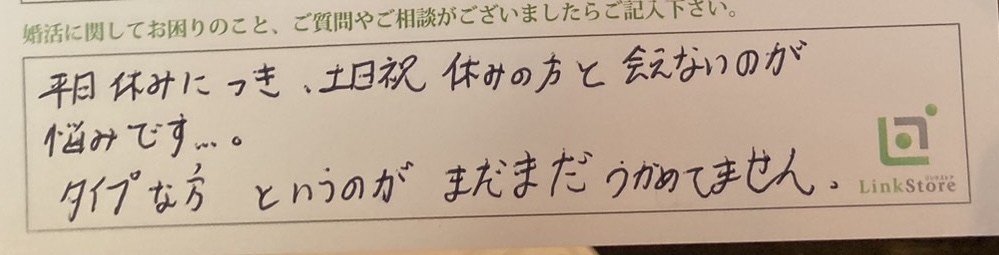 婚活に関してお困りのこと、ご質問やご相談がございましたらご記入下さい。
平日休みにつき、土日祝休みの方と会えないのが
悩みです...。
タイプな方というのがまだまだつかめてません。
LinkStore